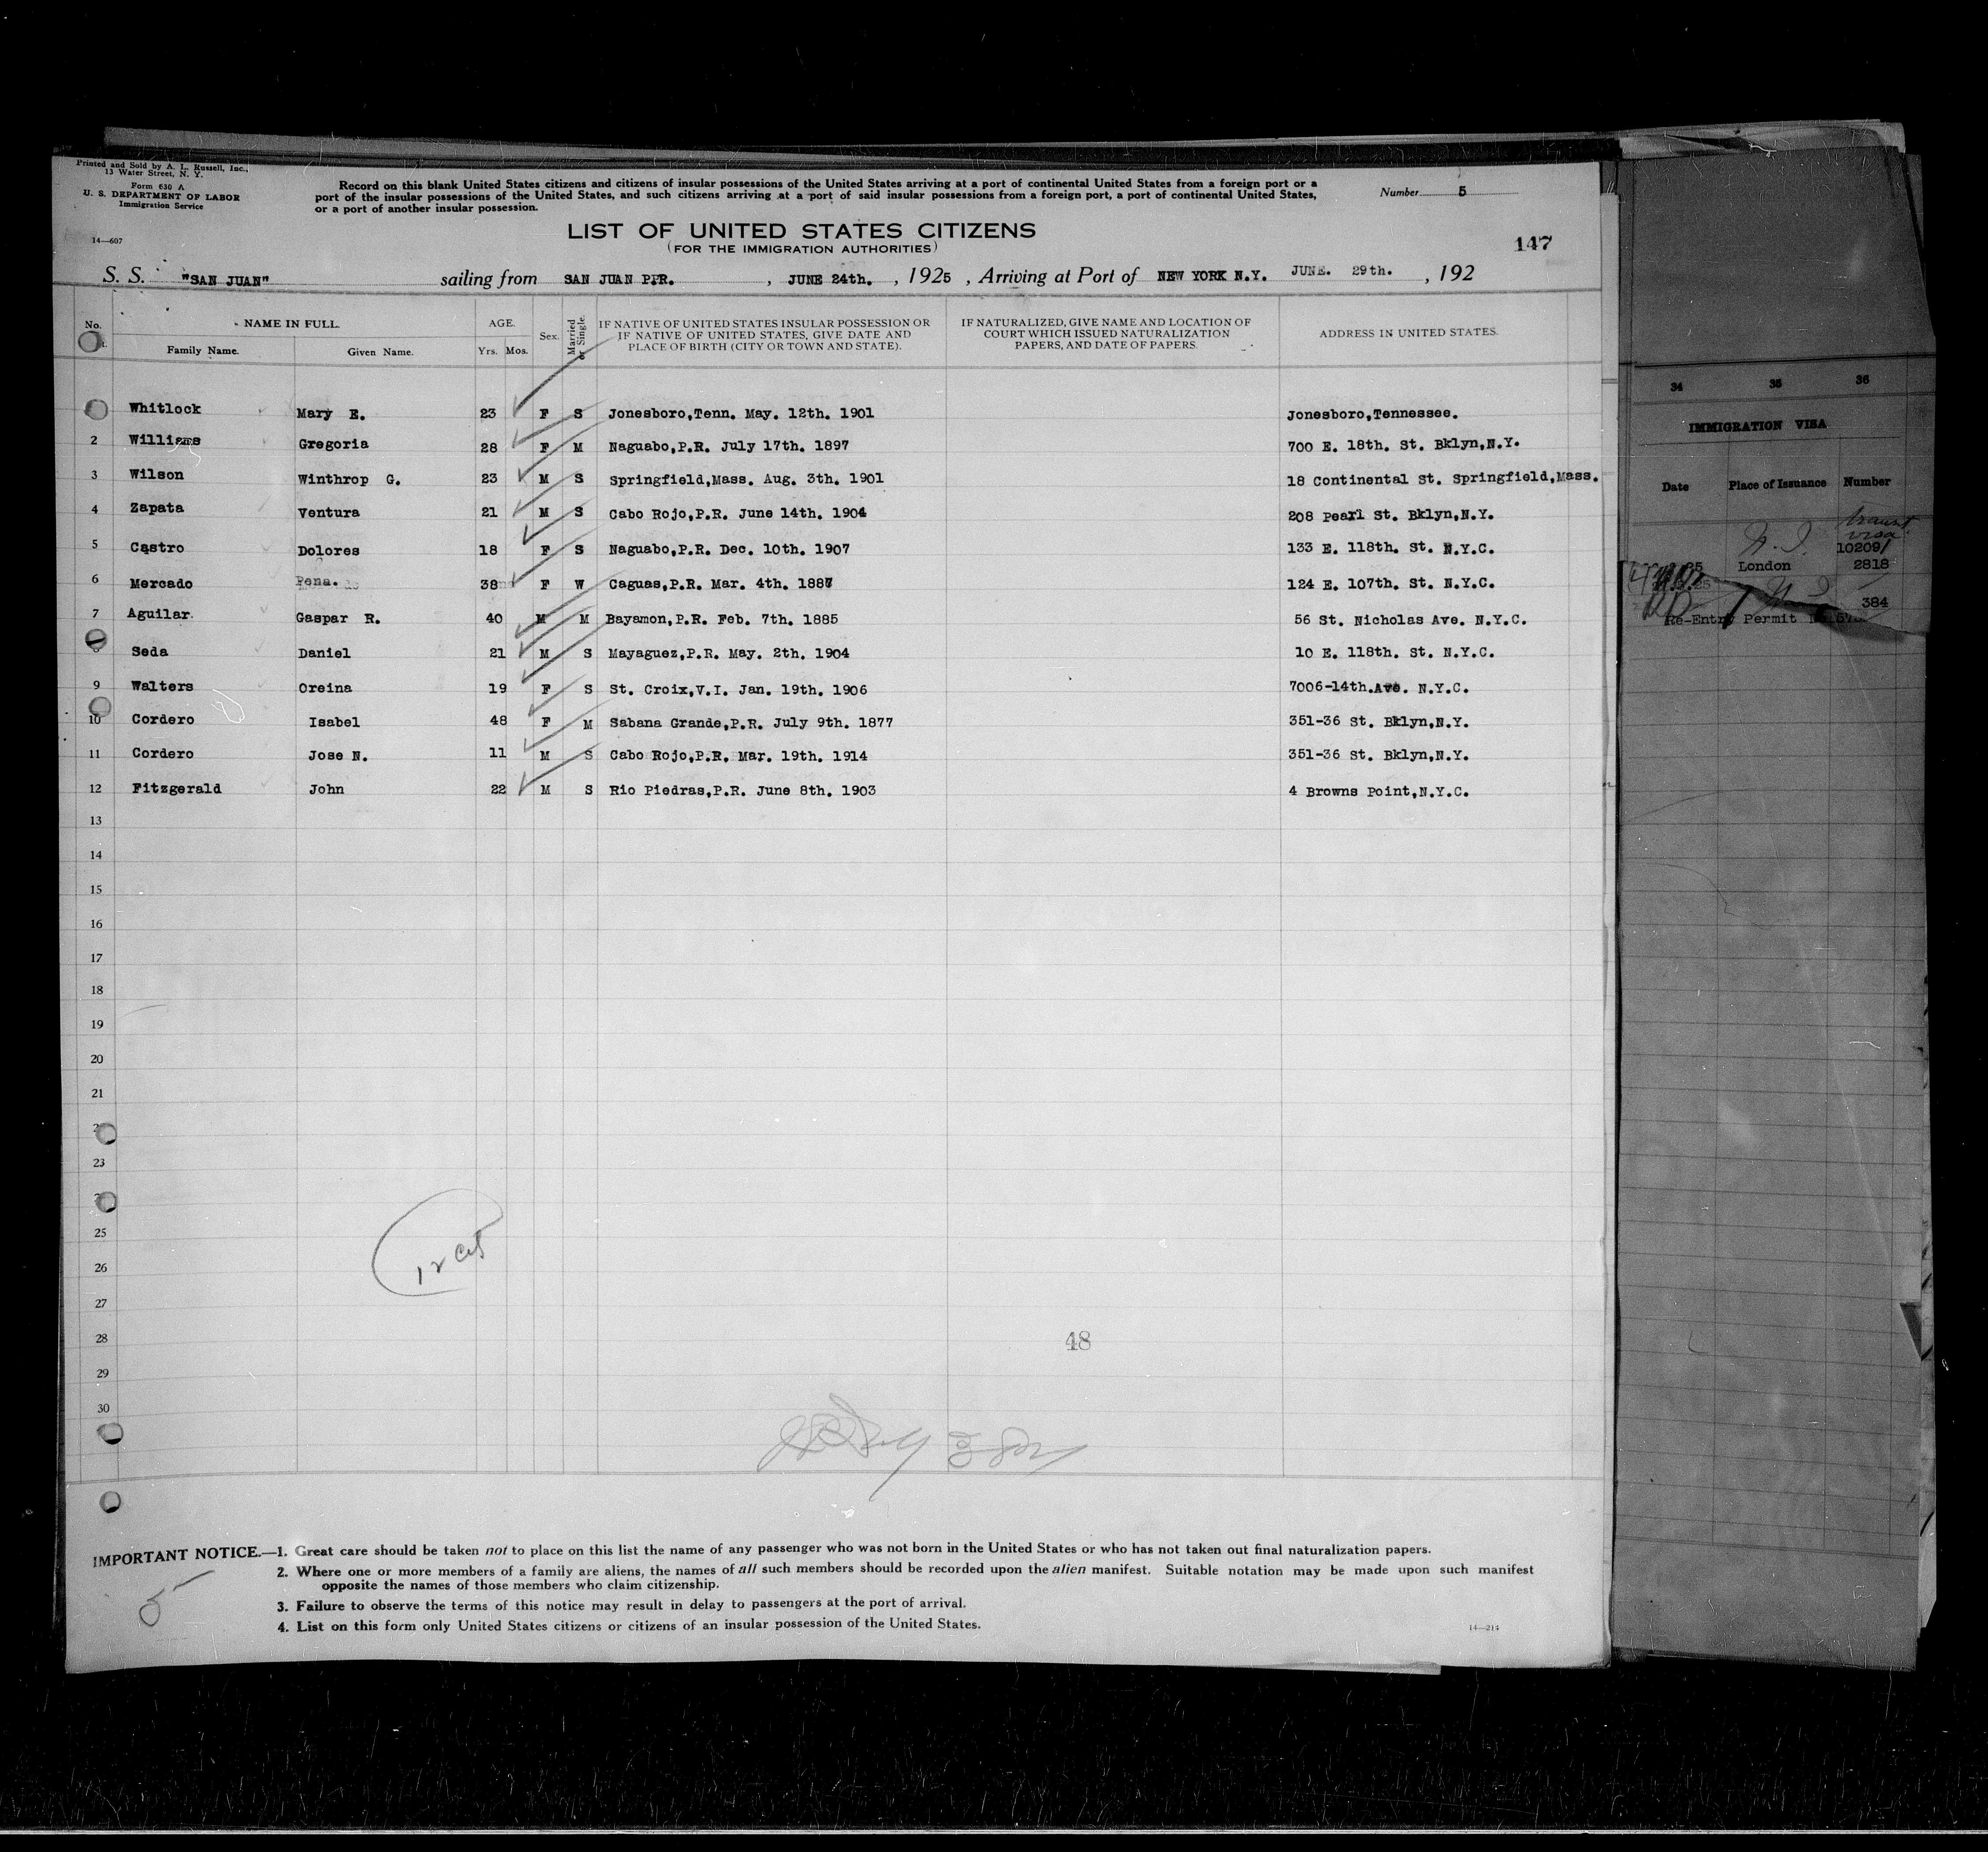 Printed and Sold by A. L. Russell, Inc.,
13 Water Street, N. Y.
Form 630 A
U. S. DEPARTMENT OF LABOR
Immigration Service
14—607
Record on this blank United States citizens and citizens of insular possessions of the United States arriving at a port of continental United States from a foreign port or a
port of the insular possessions of the United States, and such citizens arriving at a port of said insular possessions from a foreign port, a port of continental United States,
or a port of another insular possession.
Number 5
LIST OF UNITED STATES CITIZENS
(FOR THE IMMIGRATION AUTHORITIES)
147
S. S. "SAN JUAN" sailing from SAN JUAN P.R. , JUNE 24th. , 1925 , Arriving at Port of NEW YORK N.Y. JUNE. 29th. , 192
No. NAME IN FULL. AGE. Sex. Married or Single. IF NATIVE OF UNITED STATES INSULAR POSSESSION OR IF NATURALIZED, GIVE NAME AND LOCATION OF ADDRESS IN UNITED STATES.
IF NATIVE OF UNITED STATES, GIVE DATE AND COURT WHICH ISSUED NATURALIZATION
Family Name. Given Name. Yrs. Mos. PLACE OF BIRTH (CITY OR TOWN AND STATE). PAPERS, AND DATE OF PAPERS.
Whitlock Mary E. 23 F S Jonesboro,Tenn. May. 12th. 1901 Jonesboro,Tennessee.
2 Williams Gregoria 28 F M Naguabo,P.R. July 17th. 1897 700 E. 18th. St. Bklyn,N.Y.
3 Wilson Winthrop G. 23 M S Springfield,Mass. Aug. 3th. 1901 18 Continental St. Springfield,Mass.
4 Zapata Ventura 21 M S Cabo Rojo,P.R. June 14th. 1904 208 Pearl St. Bklyn,N.Y.
5 Castro Dolores 18 F S Naguabo,P.R. Dec. 10th. 1907 133 E. 118th. St. N.Y.C.
6 Mercado Pena. 38 F W Caguas,P.R. Mar. 4th. 1887 124 E. 107th. St. N.Y.C.
7 Aguilar. Gaspar R. 40 M M Bayamon,P.R. Feb. 7th. 1885 56 St. Nicholas Ave. N.Y.C.
Seda Daniel 21 M S Mayaguez,P.R. May. 2th. 1904 10 E. 118th. St. N.Y.C.
9 Walters Oreina 19 F S St. Croix,V.I. Jan. 19th. 1906 7006-14th.Ave. N.Y.C.
10 Cordero Isabel 48 F M Sabana Grande,P.R. July 9th. 1877 351-36 St. Bklyn,N.Y.
11 Cordero Jose N. 11 M S Cabo Rojo,P.R. Mar. 19th. 1914 351-36 St. Bklyn,N.Y.
12 Fitzgerald John 22 M S Rio Piedras,P.R. June 8th. 1903 4 Browns Point,N.Y.C.
13
14
15
16
17
18
19
20
21
23
25
26
27
28
29
30
12 Cit
48
IMPORTANT NOTICE.—1. Great care should be taken not to place on this list the name of any passenger who was not born in the United States or who has not taken out final naturalization papers.
2. Where one or more members of a family are aliens, the names of all such members should be recorded upon the alien manifest. Suitable notation may be made upon such manifest
opposite the names of those members who claim citizenship.
3. Failure to observe the terms of this notice may result in delay to passengers at the port of arrival.
4. List on this form only United States citizens or citizens of an insular possession of the United States.
14—214
5
34 35 36
IMMIGRATION VISA
Date Place of Issuance Number
transit
visa
10209
London 2818
384
Re-Entry Permit